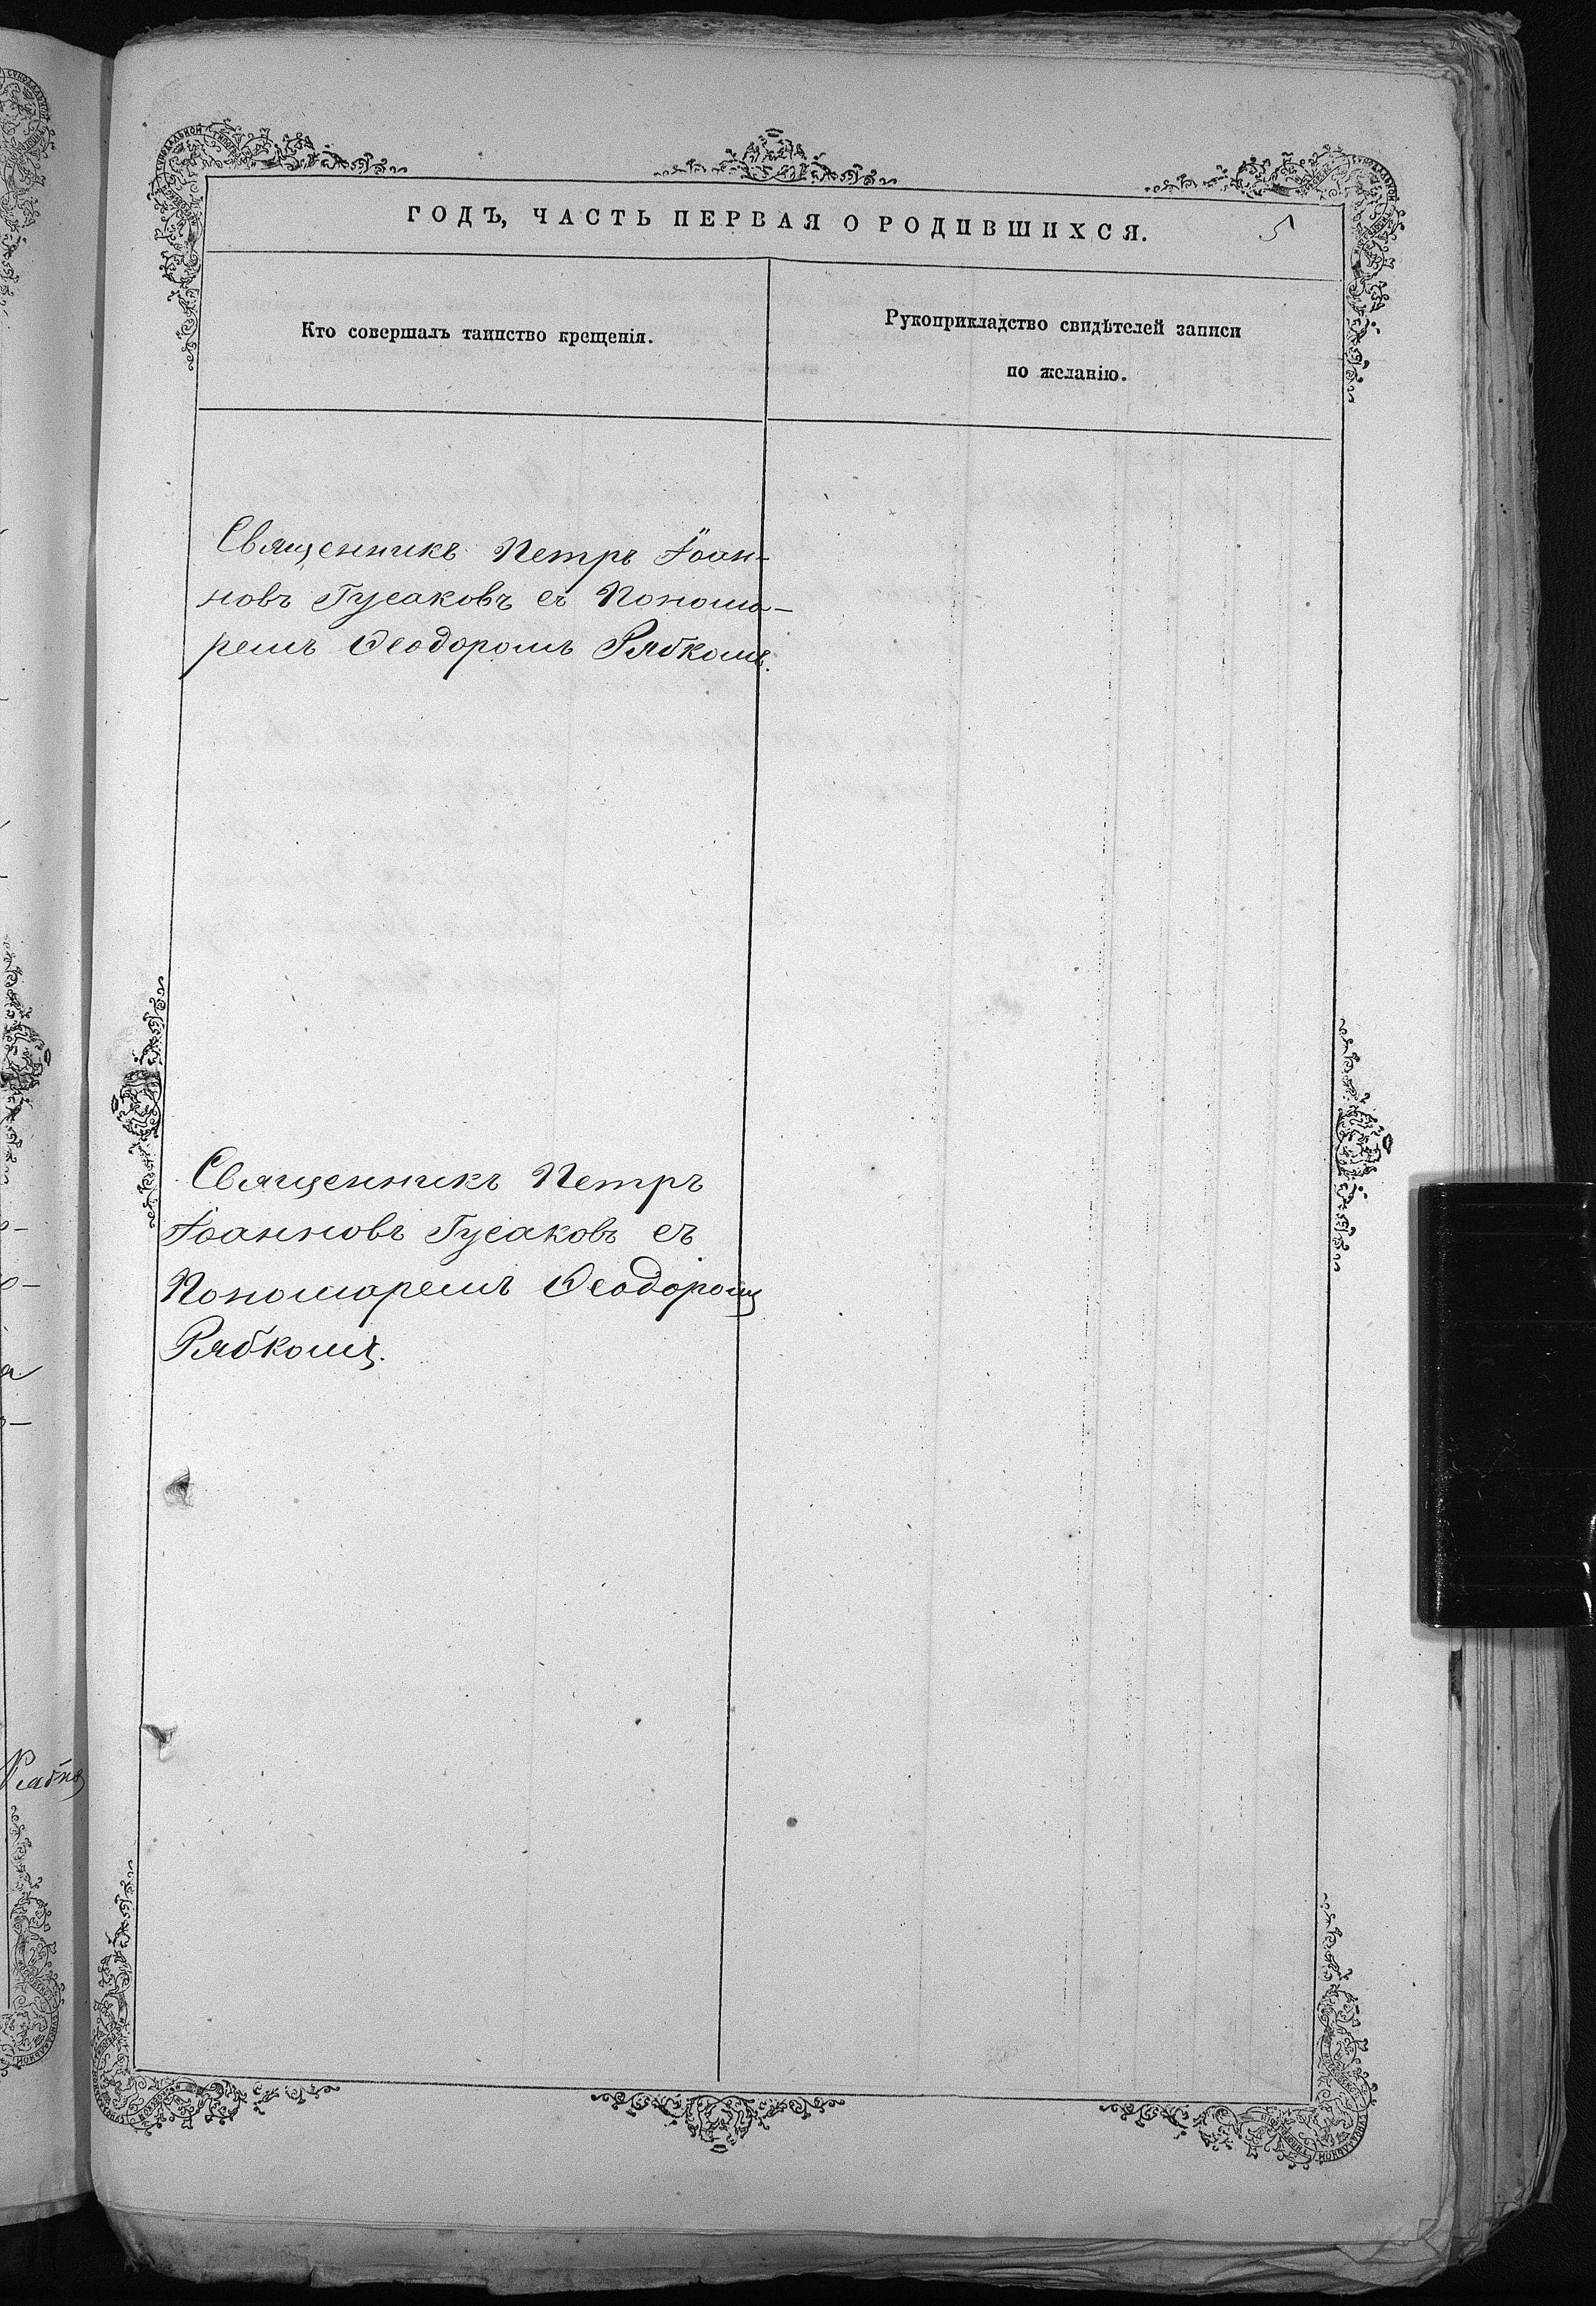 ГОДЪ, ЧАСТЬ ПЕРВАЯ О РОДИВШИХСЯ.
5
Кто совершалъ таинство крещенія.
Рукоприкладство свидѣтелей записи
по желанію.
Священникъ Петръ Іоан-
новъ Гусаковъ съ Понома-
ремъ Ѳеодоромъ Рябкомъ.
Священникъ Петръ
Іоанновъ Гусаковъ съ
Пономаремъ Ѳеодоромъ
Рябкомъ.